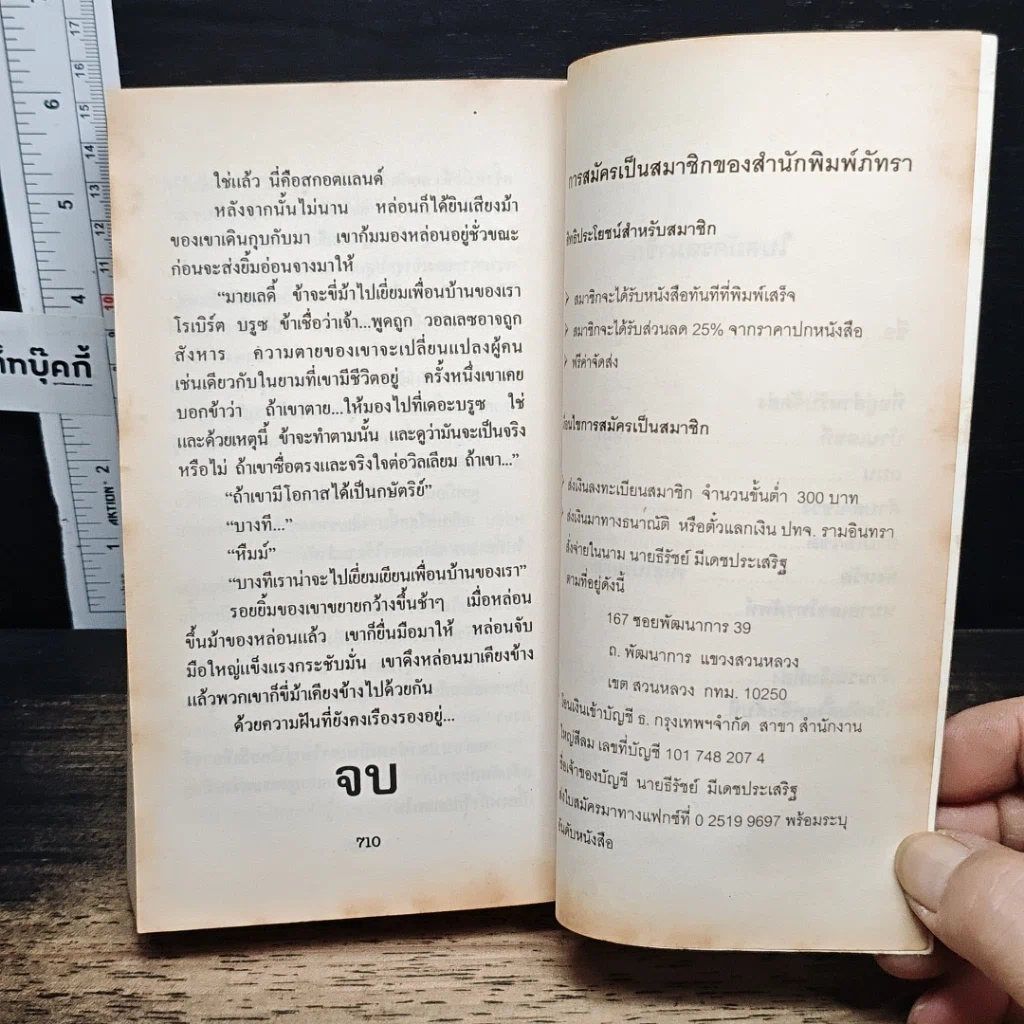 ใช่แล้ว นี่คือสกอตแลนด์
หลังจากนั้นไม่นาน หล่อนก็ได้ยินเสียงม้า
ของเขาเดินกุบกับมา เขาก้มมองหล่อนอยู่ชั่วขณะ
ก่อนจะส่งยิ้มอ่อนจางมาให้
“มายเลดี้ ข้าจะขี่ม้าไปเยี่ยมเพื่อนบ้านของเรา
โรเบิร์ต บรูซ ข้าเชื่อว่าเจ้า...พูดถูก วอลเลซอาจถูก
สังหาร ความตายของเขาจะเปลี่ยนแปลงผู้คน
เช่นเดียวกับในยามที่เขามีชีวิตอยู่ ครั้งหนึ่งเขาเคย
บอกข้าว่า ถ้าเขาตาย...ให้มองไปที่เดอะบรูซ ใช่
และด้วยเหตุนี้ ข้าจะทำตามนั้น และดูว่ามันจะเป็นจริง
หรือไม่ ถ้าเขาซื่อตรงและจริงใจต่อวิลเลียม ถ้าเขา...”
“ถ้าเขามีโอกาสได้เป็นกษัตริย์”
“บางที...”
“หืมม์”
“บางทีเราน่าจะไปเยี่ยมเยียนเพื่อนบ้านของเรา”
รอยยิ้มของเขาขยายกว้างขึ้นช้าๆ เมื่อหล่อน
ขึ้นม้าของหล่อนแล้ว เขาก็ยื่นมือมาให้ หล่อนจับ
มือใหญ่แข็งแรงกระชับมั่น เขาดึงหล่อนมาเคียงข้าง
แล้วพวกเขาก็ขี่ม้าเคียงข้างไปด้วยกัน
ด้วยความฝันที่ยังคงเรืองรองอยู่...
จบ
710
การสมัครเป็นสมาชิกของสำนักพิมพ์ภัทรา
สิทธิประโยชน์สำหรับสมาชิก
สมาชิกจะได้รับหนังสือทันทีที่พิมพ์เสร็จ
สมาชิกจะได้รับส่วนลด 25% จากราคาปกหนังสือ
ฟรีค่าจัดส่ง
เงื่อนไขการสมัครเป็นสมาชิก
ส่งเงินลงทะเบียนสมาชิก จำนวนขั้นต่ำ 300 บาท
ส่งเงินมาทางธนาณัติ หรือตั๋วแลกเงิน ปทจ. รามอินทรา
สั่งจ่ายในนาม นายธีรัชย์ มีเดชประเสริฐ
ตามที่อยู่ดังนี้
167 ซอยพัฒนาการ 39
ถ. พัฒนาการ แขวงสวนหลวง
เขต สวนหลวง กทม. 10250
โอนเงินเข้าบัญชี ธ. กรุงเทพฯจำกัด สาขา สำนักงาน
ใหญ่สีลม เลขที่บัญชี 101 748 207 4
ชื่อเจ้าของบัญชี นายธีรัชย์ มีเดชประเสริฐ
ส่งใบสมัครมาทางแฟกซ์ที่ 0 2519 9697 พร้อมระบุ
อันดับหนังสือ
ก็ทบุ๊คกี้